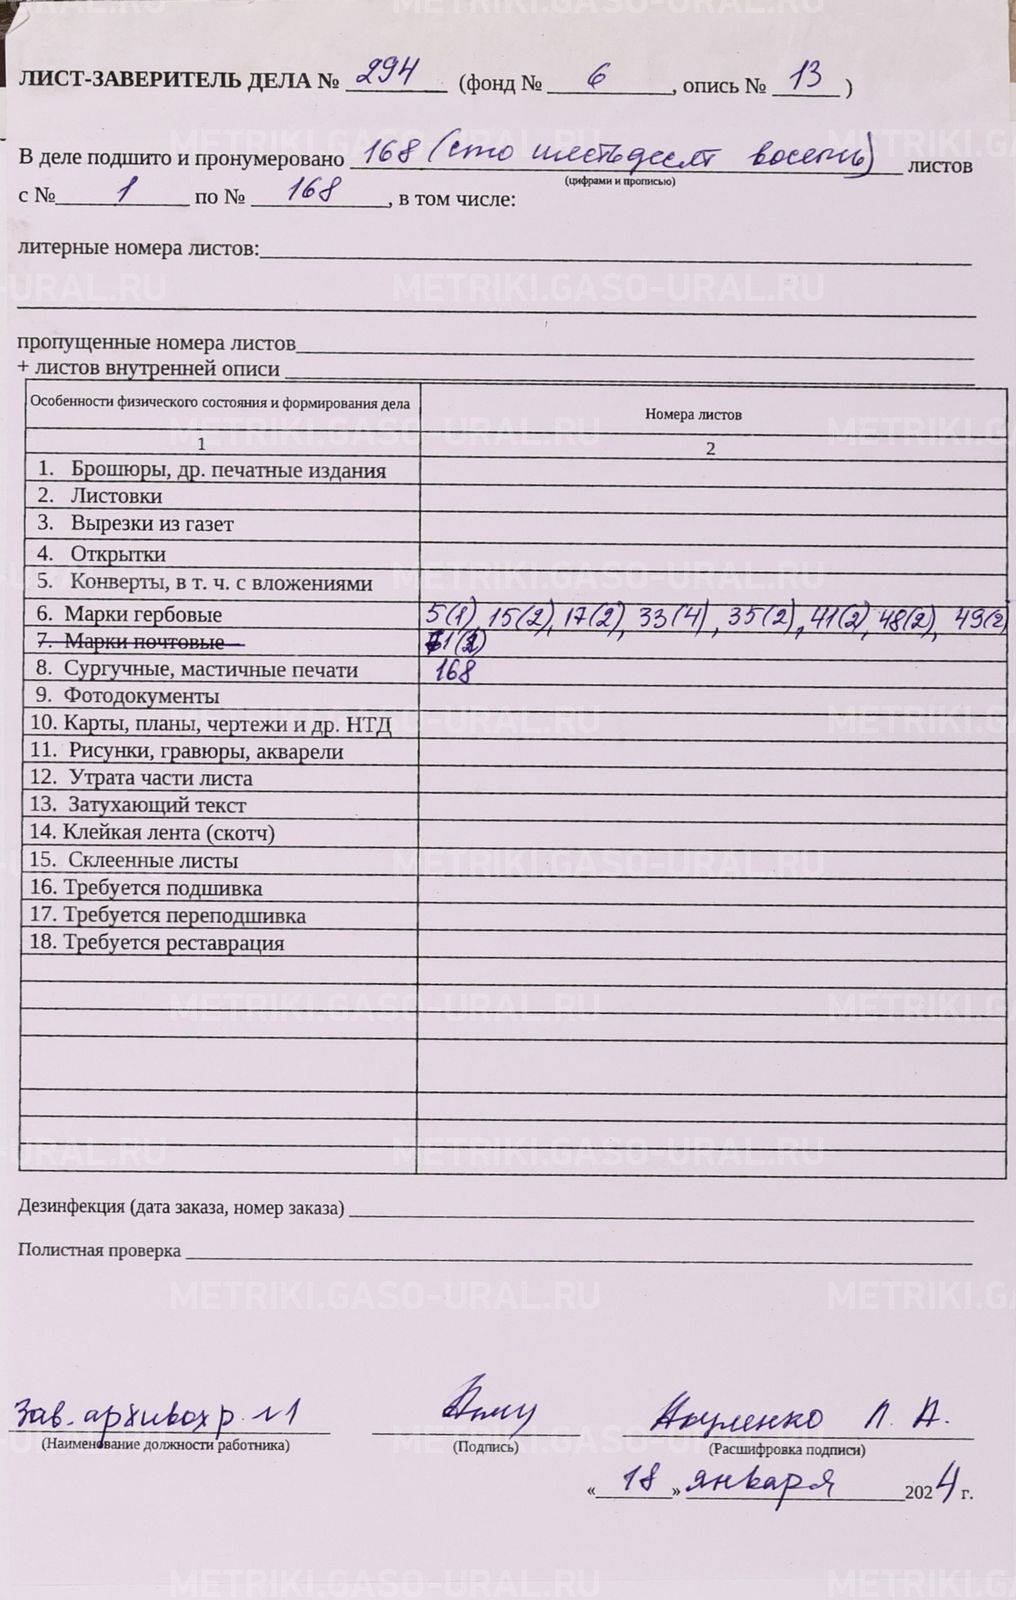 ЛИСТ-ЗАВЕРИТЕЛЬ ДЕЛА № 294 (фонд № 6, опись № 13)
В деле подшито и пронумеровано 168 (сто шестьдесят восемь) листов
(цифрами и прописью)
с № 1 по № 168, в том числе:
литерные номера листов:
пропущенные номера листов
+ листов внутренней описи
Особенности физического состояния и формирования дела Номера листов
1 2
1. Брошюры, др. печатные издания
2. Листовки
3. Вырезки из газет
4. Открытки
5. Конверты, в т. ч. с вложениями
6. Марки гербовые 5(1), 15(2), 17(2), 33(4), 35(2), 41(2), 48(2), 49(2)
7. Марки почтовые
8. Сургучные, мастичные печати 168
9. Фотодокументы
10. Карты, планы, чертежи и др. НТД
11. Рисунки, гравюры, акварели
12. Утрата части листа
13. Затухающий текст
14. Клейкая лента (скотч)
15. Склеенные листы
16. Требуется подшивка
17. Требуется переподшивка
18. Требуется реставрация
Дезинфекция (дата заказа, номер заказа)
Полистная проверка
Зав. архивохр. №1 Л. А.
(Наименование должности работника) (Подпись) (Расшифровка подписи)
« 18 » января 2024 г.
METRIKI.GASO-URAL.RU